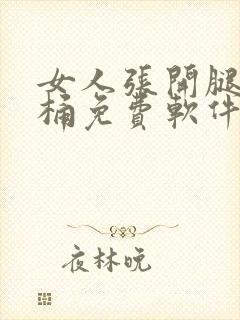 女人張開腿
桶免費軟件
夜林晚